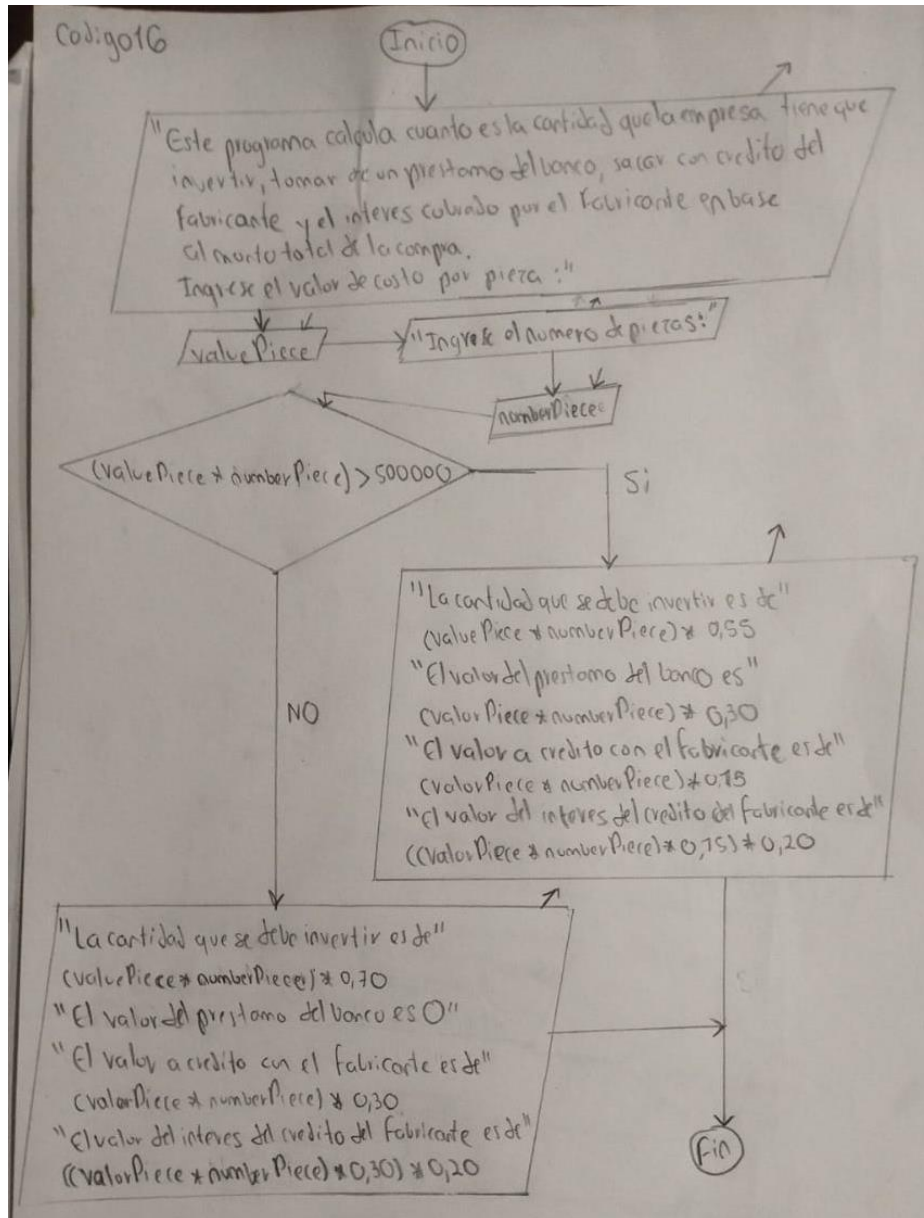 Codigo16
Inicio
"Este programa calcula cuanto es la cantidad que la empresa tiene que
invertir, tomar de un prestamo del banco, sacar con credito del
fabricante y el interes cobrado por el fabricante en base
al monto total de la compra.
Ingrese el valor de costo por pieza:"
valuePiece
"Ingrese el numero de piezas:"
numberPiece
(valuePiece * numberPiece) > 500000
Si
"La cantidad que se debe invertir es de"
(valuePiece * numberPiece) * 0,55
"El valor del prestamo del banco es"
(valorPiece * numberPiece) * 0,30
"El valor a credito con el fabricante es de"
(valorPiece * numberPiece) * 0,15
"El valor del interes del credito del fabricante es de"
((valorPiece * numberPiece) * 0,15) * 0,20
NO
"La cantidad que se debe invertir es de"
(valuePiece * numberPiece) * 0,70
"El valor del prestamo del banco es 0"
"El valor a credito con el fabricante es de"
(valorPiece * numberPiece) * 0,30
"El valor del interes del credito del fabricante es de"
((valorPiece * numberPiece) * 0,30) * 0,20
Fin